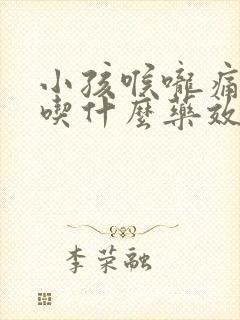 小孩喉嚨痛
喫什麼藥效
李荣融